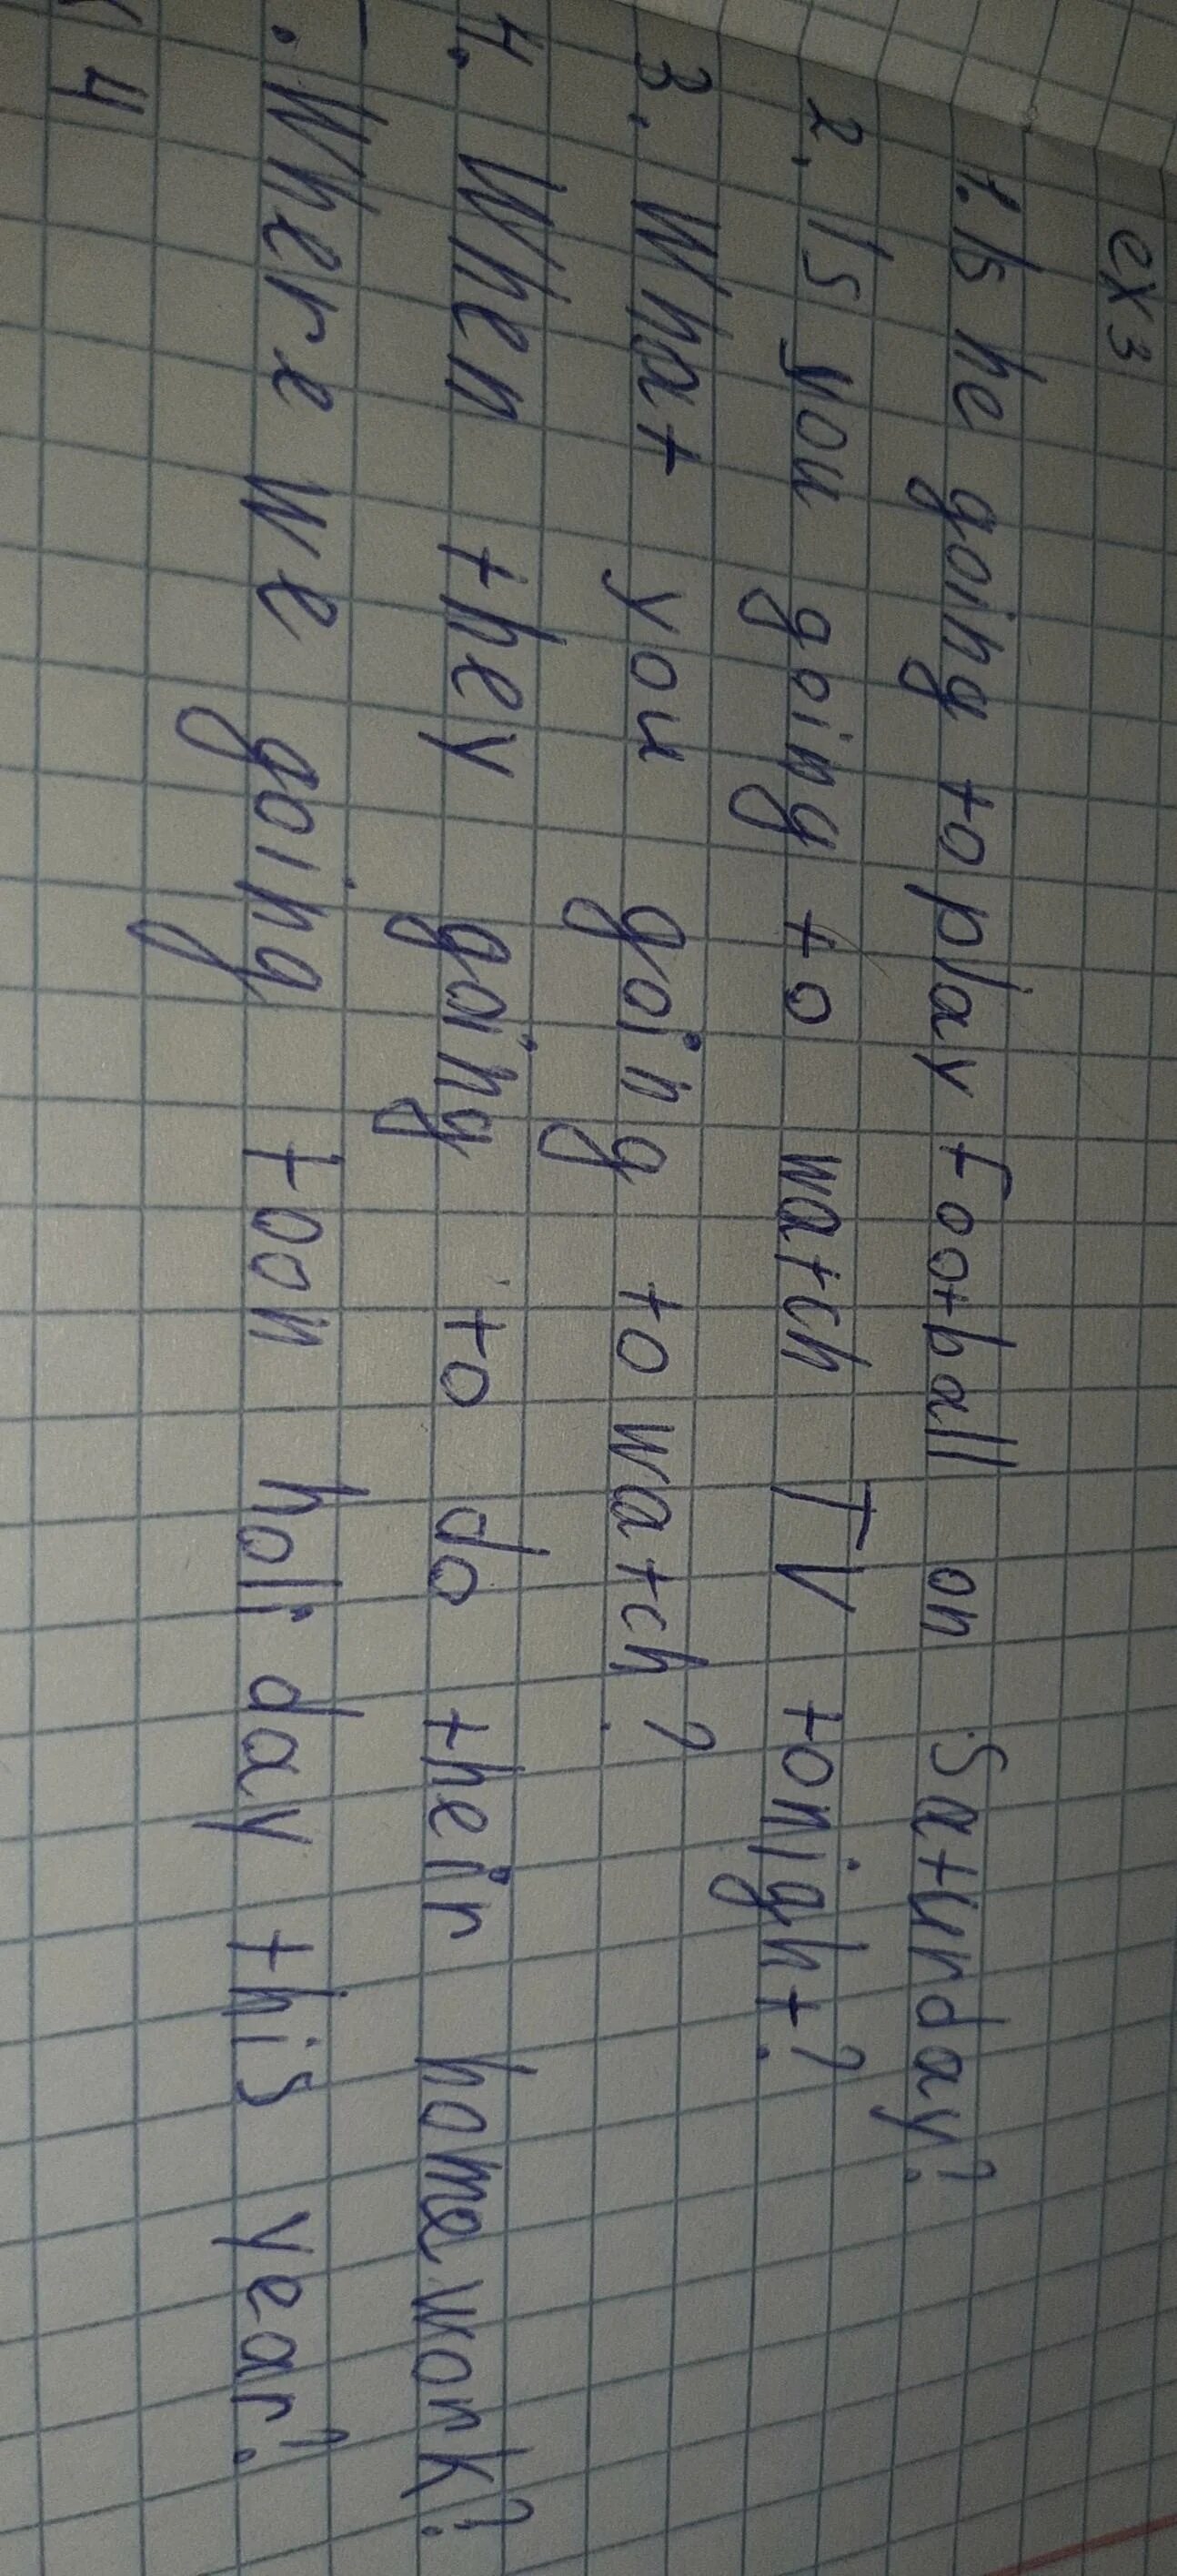 ex 3
1. Is he going to play Football on Saturday?
2. Is you going to watch TV tonight?
3. What you going to watch?
4. When they going to do their homework?
. Where we going toon holi day this year?
4